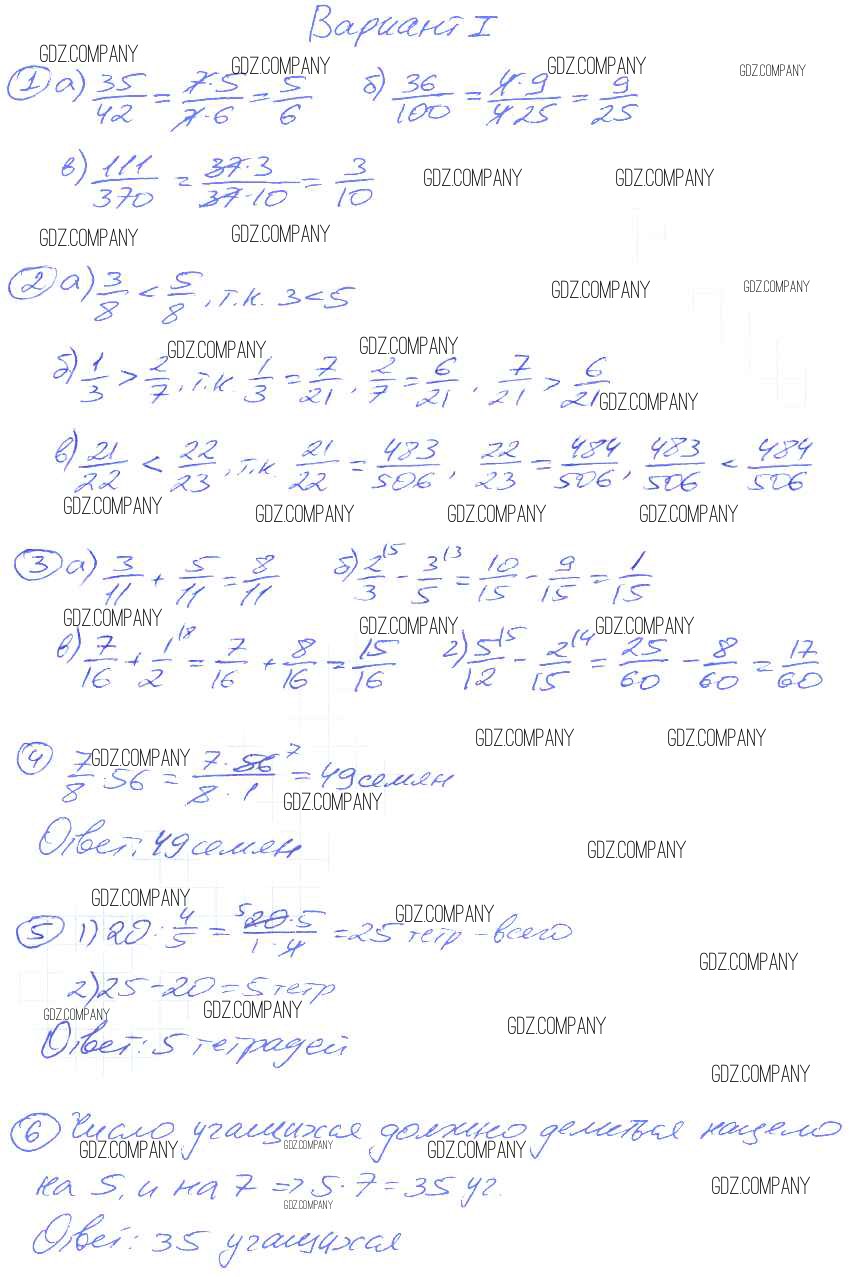 Вариант I
GDZ.COMPANY GDZ.COMPANY GDZ.COMPANY GDZ.COMPANY
1 а) 35/42 = 7·5/7·6 = 5/6 б) 36/100 = 4·9/4 25 = 9/25
в) 111/370 = 37·3/37·10 = 3/10 GDZ.COMPANY GDZ.COMPANY
GDZ.COMPANY GDZ.COMPANY
2 а) 3/8 < 5/8, т.к. 3 < 5 GDZ.COMPANY GDZ.COMPANY
GDZ.COMPANY GDZ.COMPANY
б) 1/3 > 2/7, т.к. 1/3 = 7/21, 2/7 = 6/21, 7/21 > 6/21
GDZ.COMPANY
в) 21/22 < 22/23, т.к. 21/22 = 483/506, 22/23 = 484/506, 483/506 < 484/506
GDZ.COMPANY GDZ.COMPANY GDZ.COMPANY GDZ.COMPANY
3 а) 3/11 + 5/11 = 8/11 б) 2/3 |5 - 3/5 |3 = 10/15 - 9/15 = 1/15
GDZ.COMPANY GDZ.COMPANY GDZ.COMPANY
в) 7/16 + 1/2 |8 = 7/16 + 8/16 = 15/16 г) 5/12 |5 - 2/15 |4 = 25/60 - 8/60 = 17/60
GDZ.COMPANY GDZ.COMPANY
4 7/8 · 56 = 7·56 7/8·1 = 49 семян
GDZ.COMPANY GDZ.COMPANY
Ответ: 49 семян GDZ.COMPANY
GDZ.COMPANY GDZ.COMPANY
5 1) 20 : 4/5 = 5 20·5/1·4 = 25 тетр - всего
GDZ.COMPANY
2) 25 - 20 = 5 тетр
GDZ.COMPANY GDZ.COMPANY GDZ.COMPANY
Ответ: 5 тетрадей
GDZ.COMPANY
6 Число учащихся должно делиться нацело
GDZ.COMPANY GDZ.COMPANY GDZ.COMPANY
на 5, и на 7 => 5·7 = 35 уч. GDZ.COMPANY
GDZ.COMPANY
Ответ: 35 учащихся